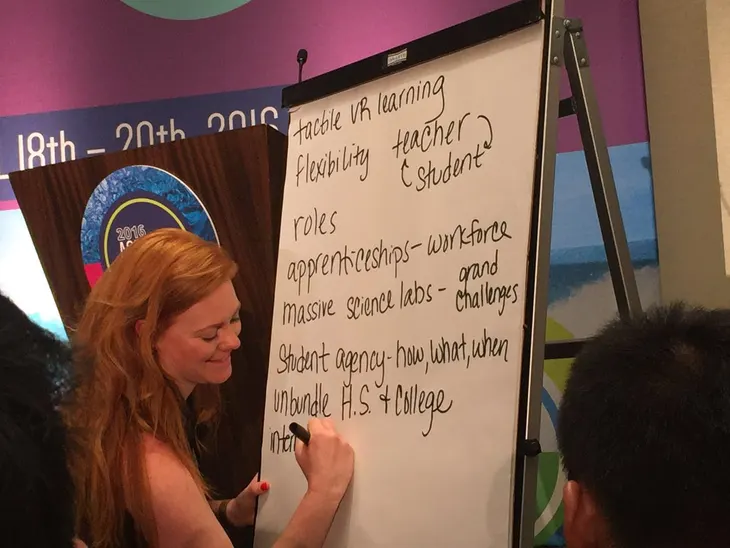 18th - 20th, 2016
2016
tactile VR learning
flexibility teacher
student
roles
apprenticeships - workforce
massive science labs - grand
challenges
Student agency - how, what, when
unbundle H.S. + College
inter